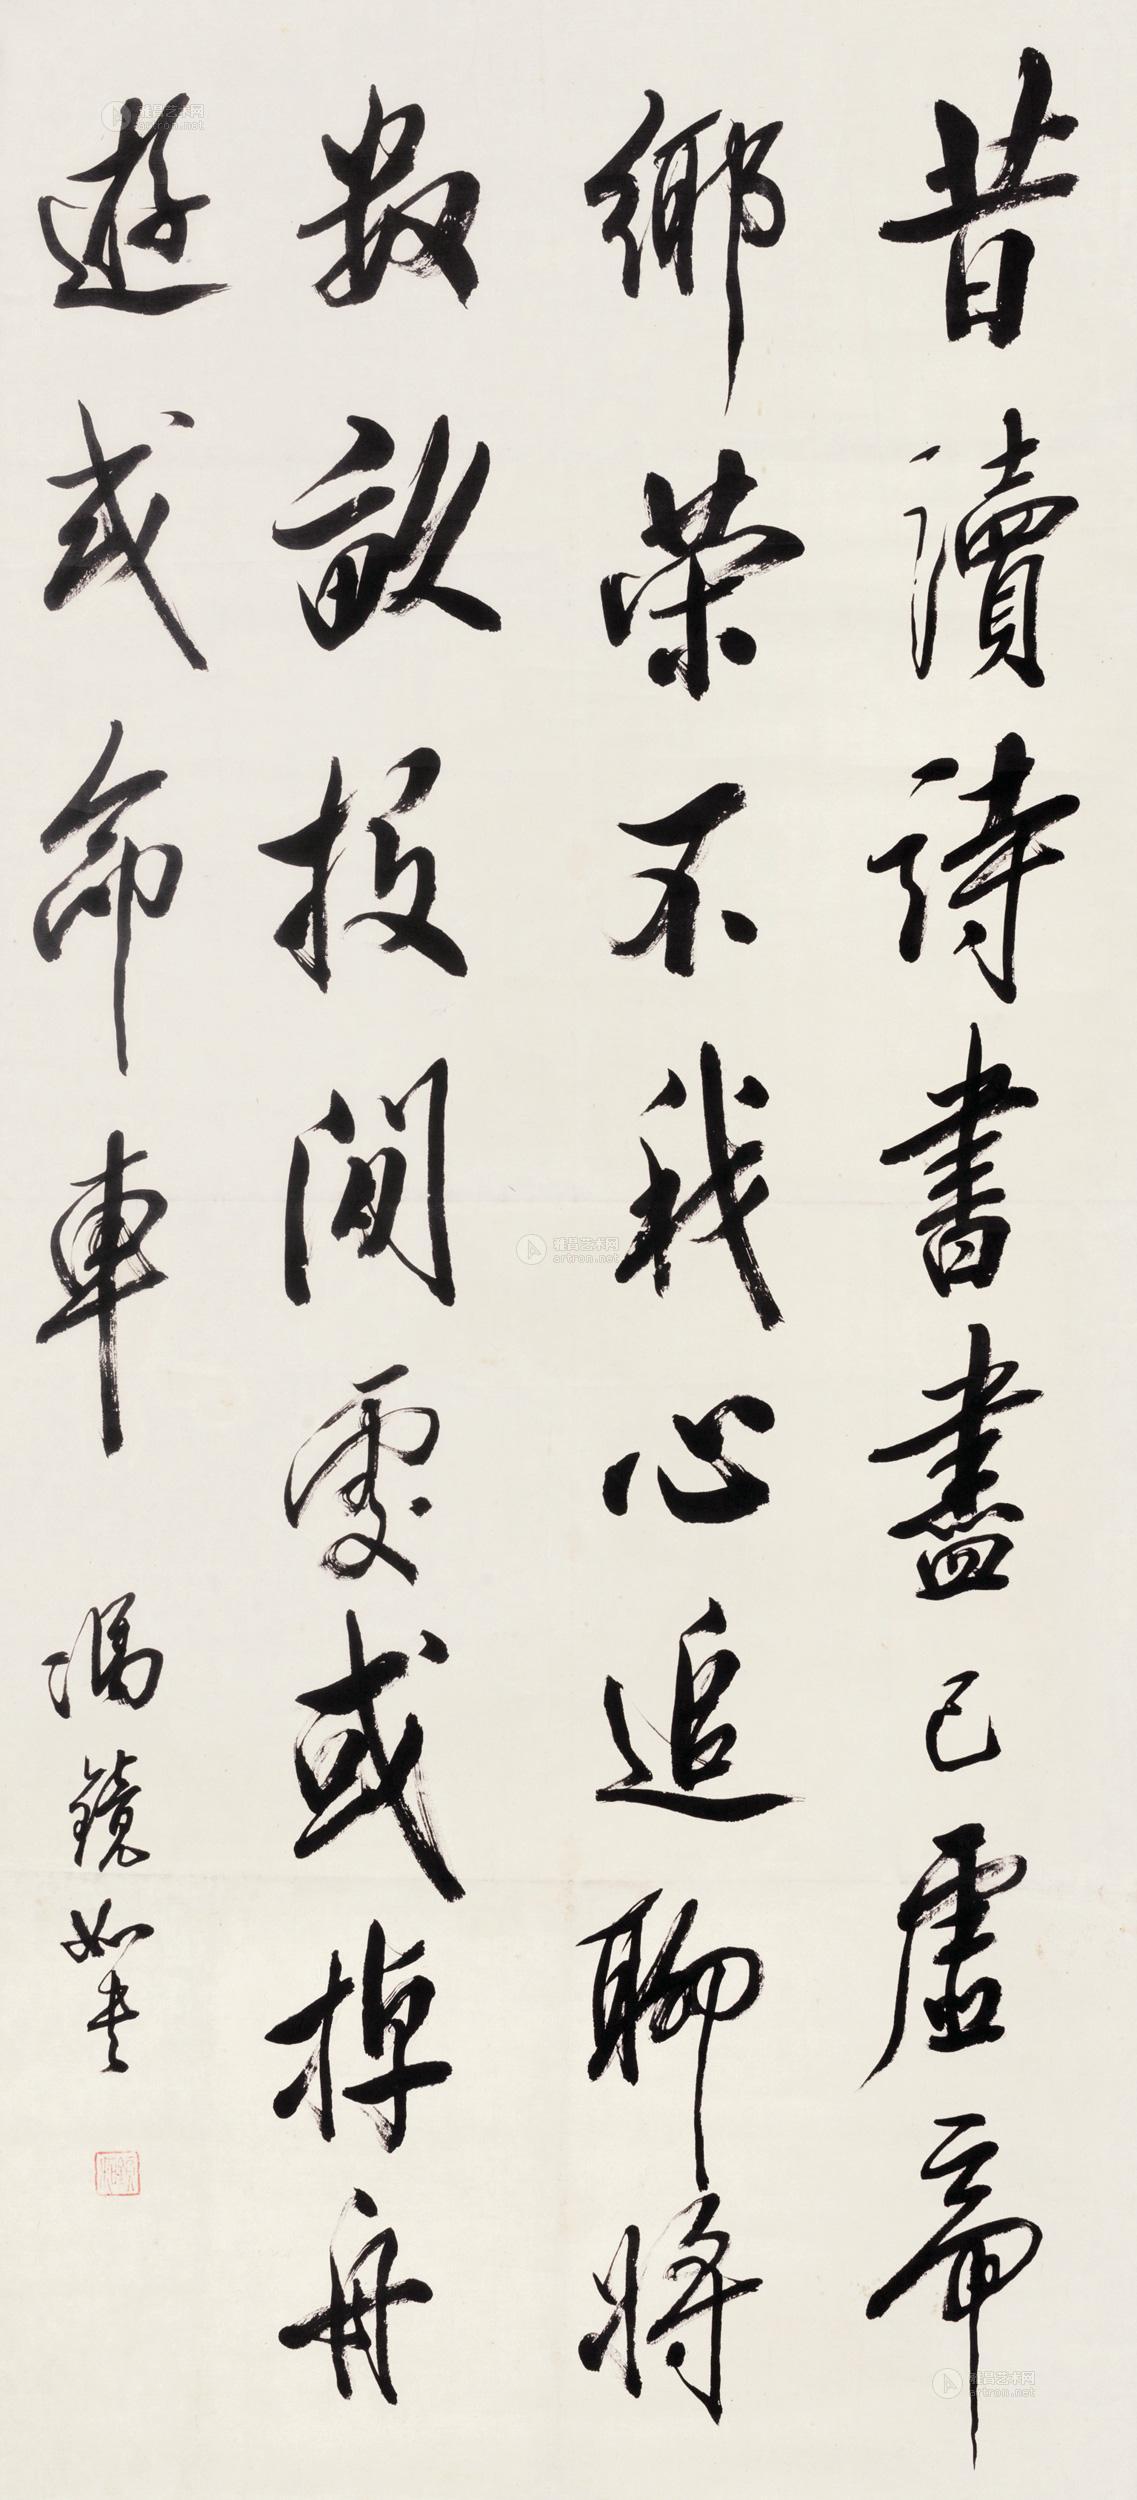 昔讀詩書盡已虛帝
鄉榮不我心追聊將
數畝投閒處或棹舟
遊或命車
馮鏡如
雅昌艺术网
artron.net
雅昌艺术网
artron.net
雅昌艺术网
artron.net